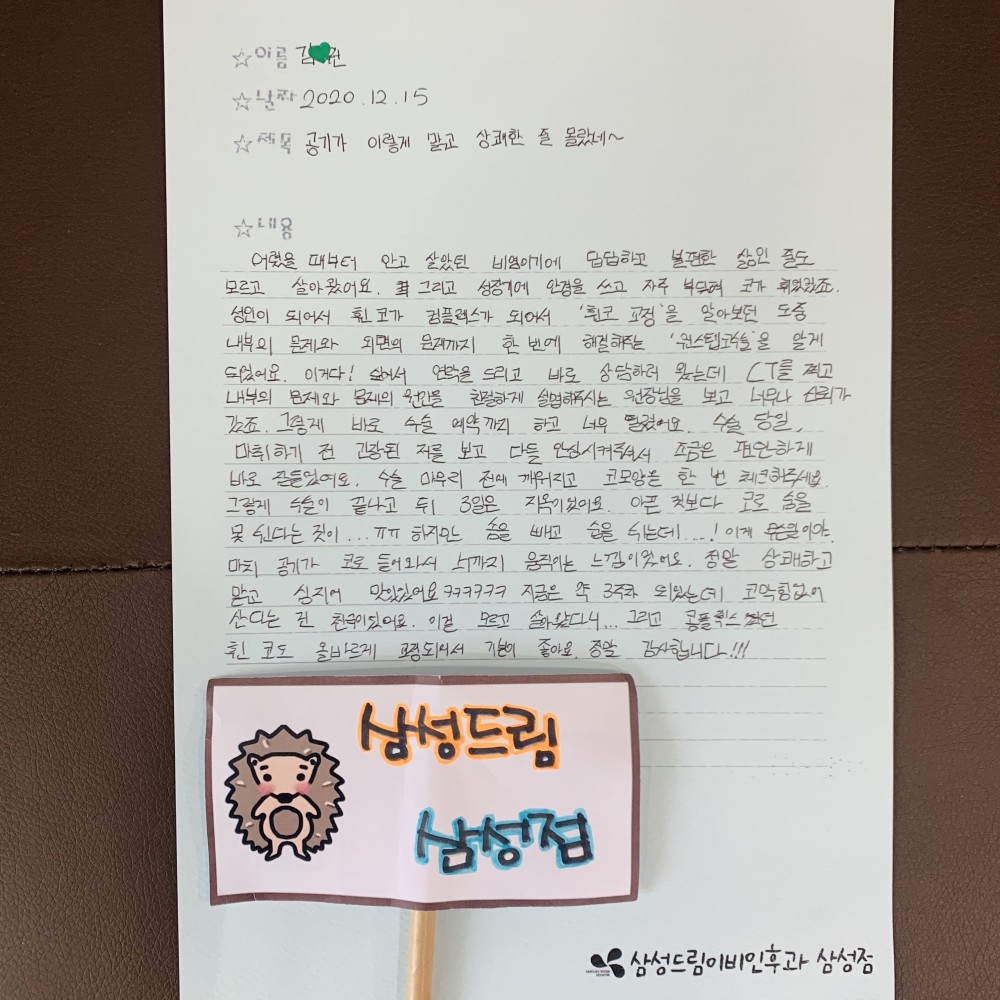 ☆이름 김💚권
☆날짜 2020.12.15
☆제목 공기가 이렇게 맑고 상쾌한 줄 몰랐네~
☆내용
어렸을 때부터 안고 살았던 비염이기에 답답하고 불편한 삶인 줄도
모르고 살아왔어요. 그리고 성장기에 안경을 쓰고 자주 부딪혀 코가 휘었었죠.
성인이 되어서 휜 코가 컴플렉스가 되어서 '휜코 교정'을 알아보던 도중
내부의 문제와 외면의 문제까지 한 번에 해결해주는 '원스텝코수술'을 알게
되었어요. 이거다! 싶어서 연락을 드리고 바로 상담하러 왔는데 CT를 찍고
내부의 문제와 문제의 원인을 친절하게 설명해주시는 원장님을 보고 너무나 신뢰가
갔죠. 그렇게 바로 수술 예약까지 하고 너무 떨렸어요. 수술 당일,
마취하기 전 긴장된 저를 보고 다들 안심시켜주셔서 조금은 편안하게
바로 잠들었어요. 수술 마무리 전에 깨워지고 코모양을 한 번 체크해주세요.
그렇게 수술이 끝나고 뒤 3일은 지옥이었어요. 아픈 것보다 코로 숨을
못 쉰다는 것이...ㅠㅠ 하지만 솜을 빼고 숨을 쉬는데...! 이게 무슨일이야.
마치 공기가 코로 들어와서 뇌까지 움직이는 느낌이었어요. 정말 상쾌하고
맑고 심지어 맛있었어요ㅋㅋㅋㅋㅋㅋ 지금은 딱 3주차 되었는데 코막힘없이
산다는 건 천국이었어요. 이걸 모르고 살아왔다니... 그리고 콤플렉스 였던
휜 코도 올바르게 교정되어서 기분이 좋아요. 정말 감사합니다!!!
삼성드림
삼성점
삼성드림이비인후과 삼성점